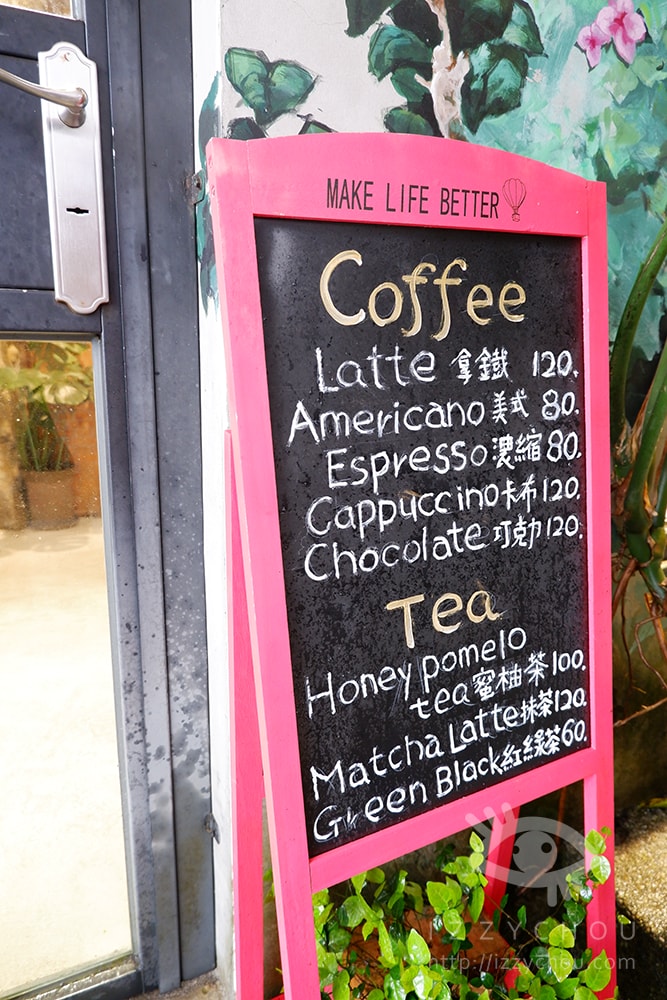 MAKE LIFE BETTER
Coffee
Latte 拿鐵 120.
Americano 美式 80.
Espresso 濃縮 80.
Cappuccino 卡布 120.
Chocolate 可勀 120.
Tea
Honey pomelo
tea 蜜柚茶 100.
Matcha Latte 抹茶 120.
Green Black 紅綠茶 60.
IZZYCHOU
http://izzychou.com